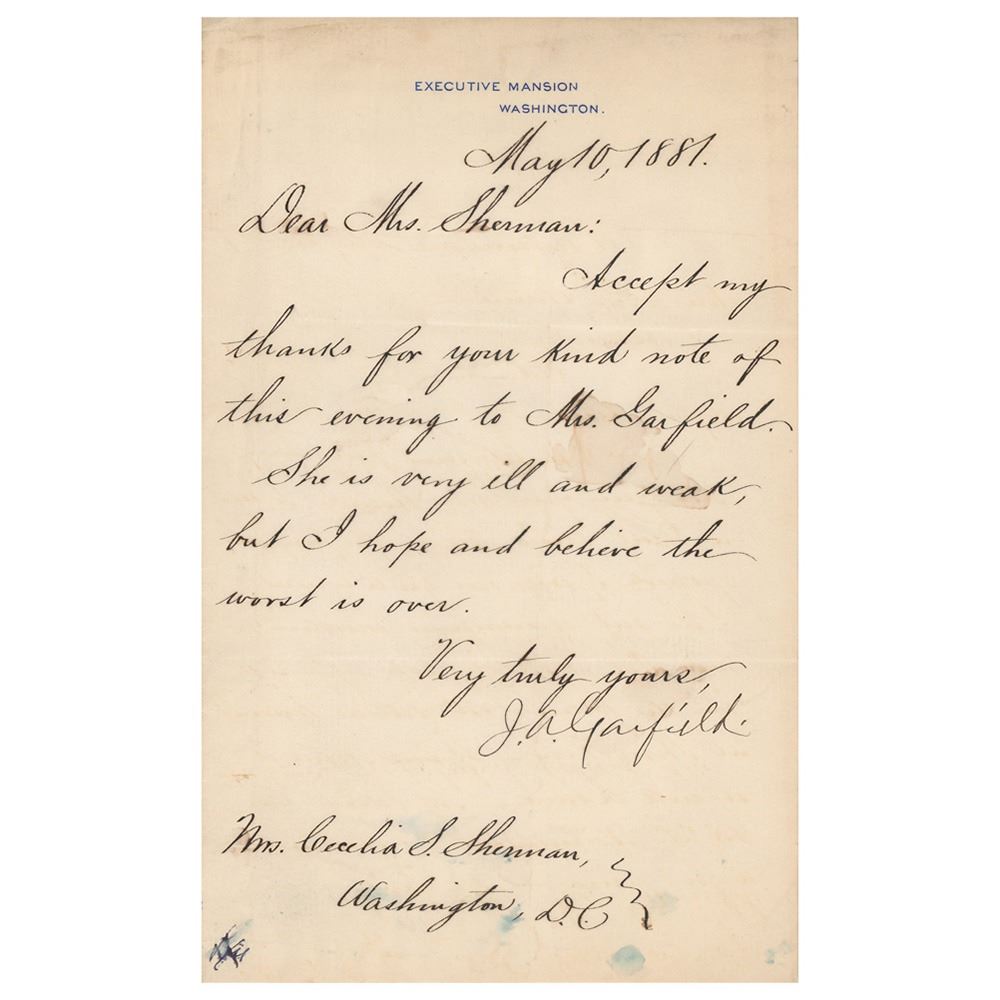 EXECUTIVE MANSION
WASHINGTON.
May 10, 1881.
Dear Mrs. Sherman:
Accept my
thanks for your kind note of
this evening to Mrs. Garfield.
She is very ill and weak,
but I hope and believe the
worst is over.
Very truly yours,
J. A. Garfield.
Mrs. Cecelia S. Sherman,
Washington, D.C.